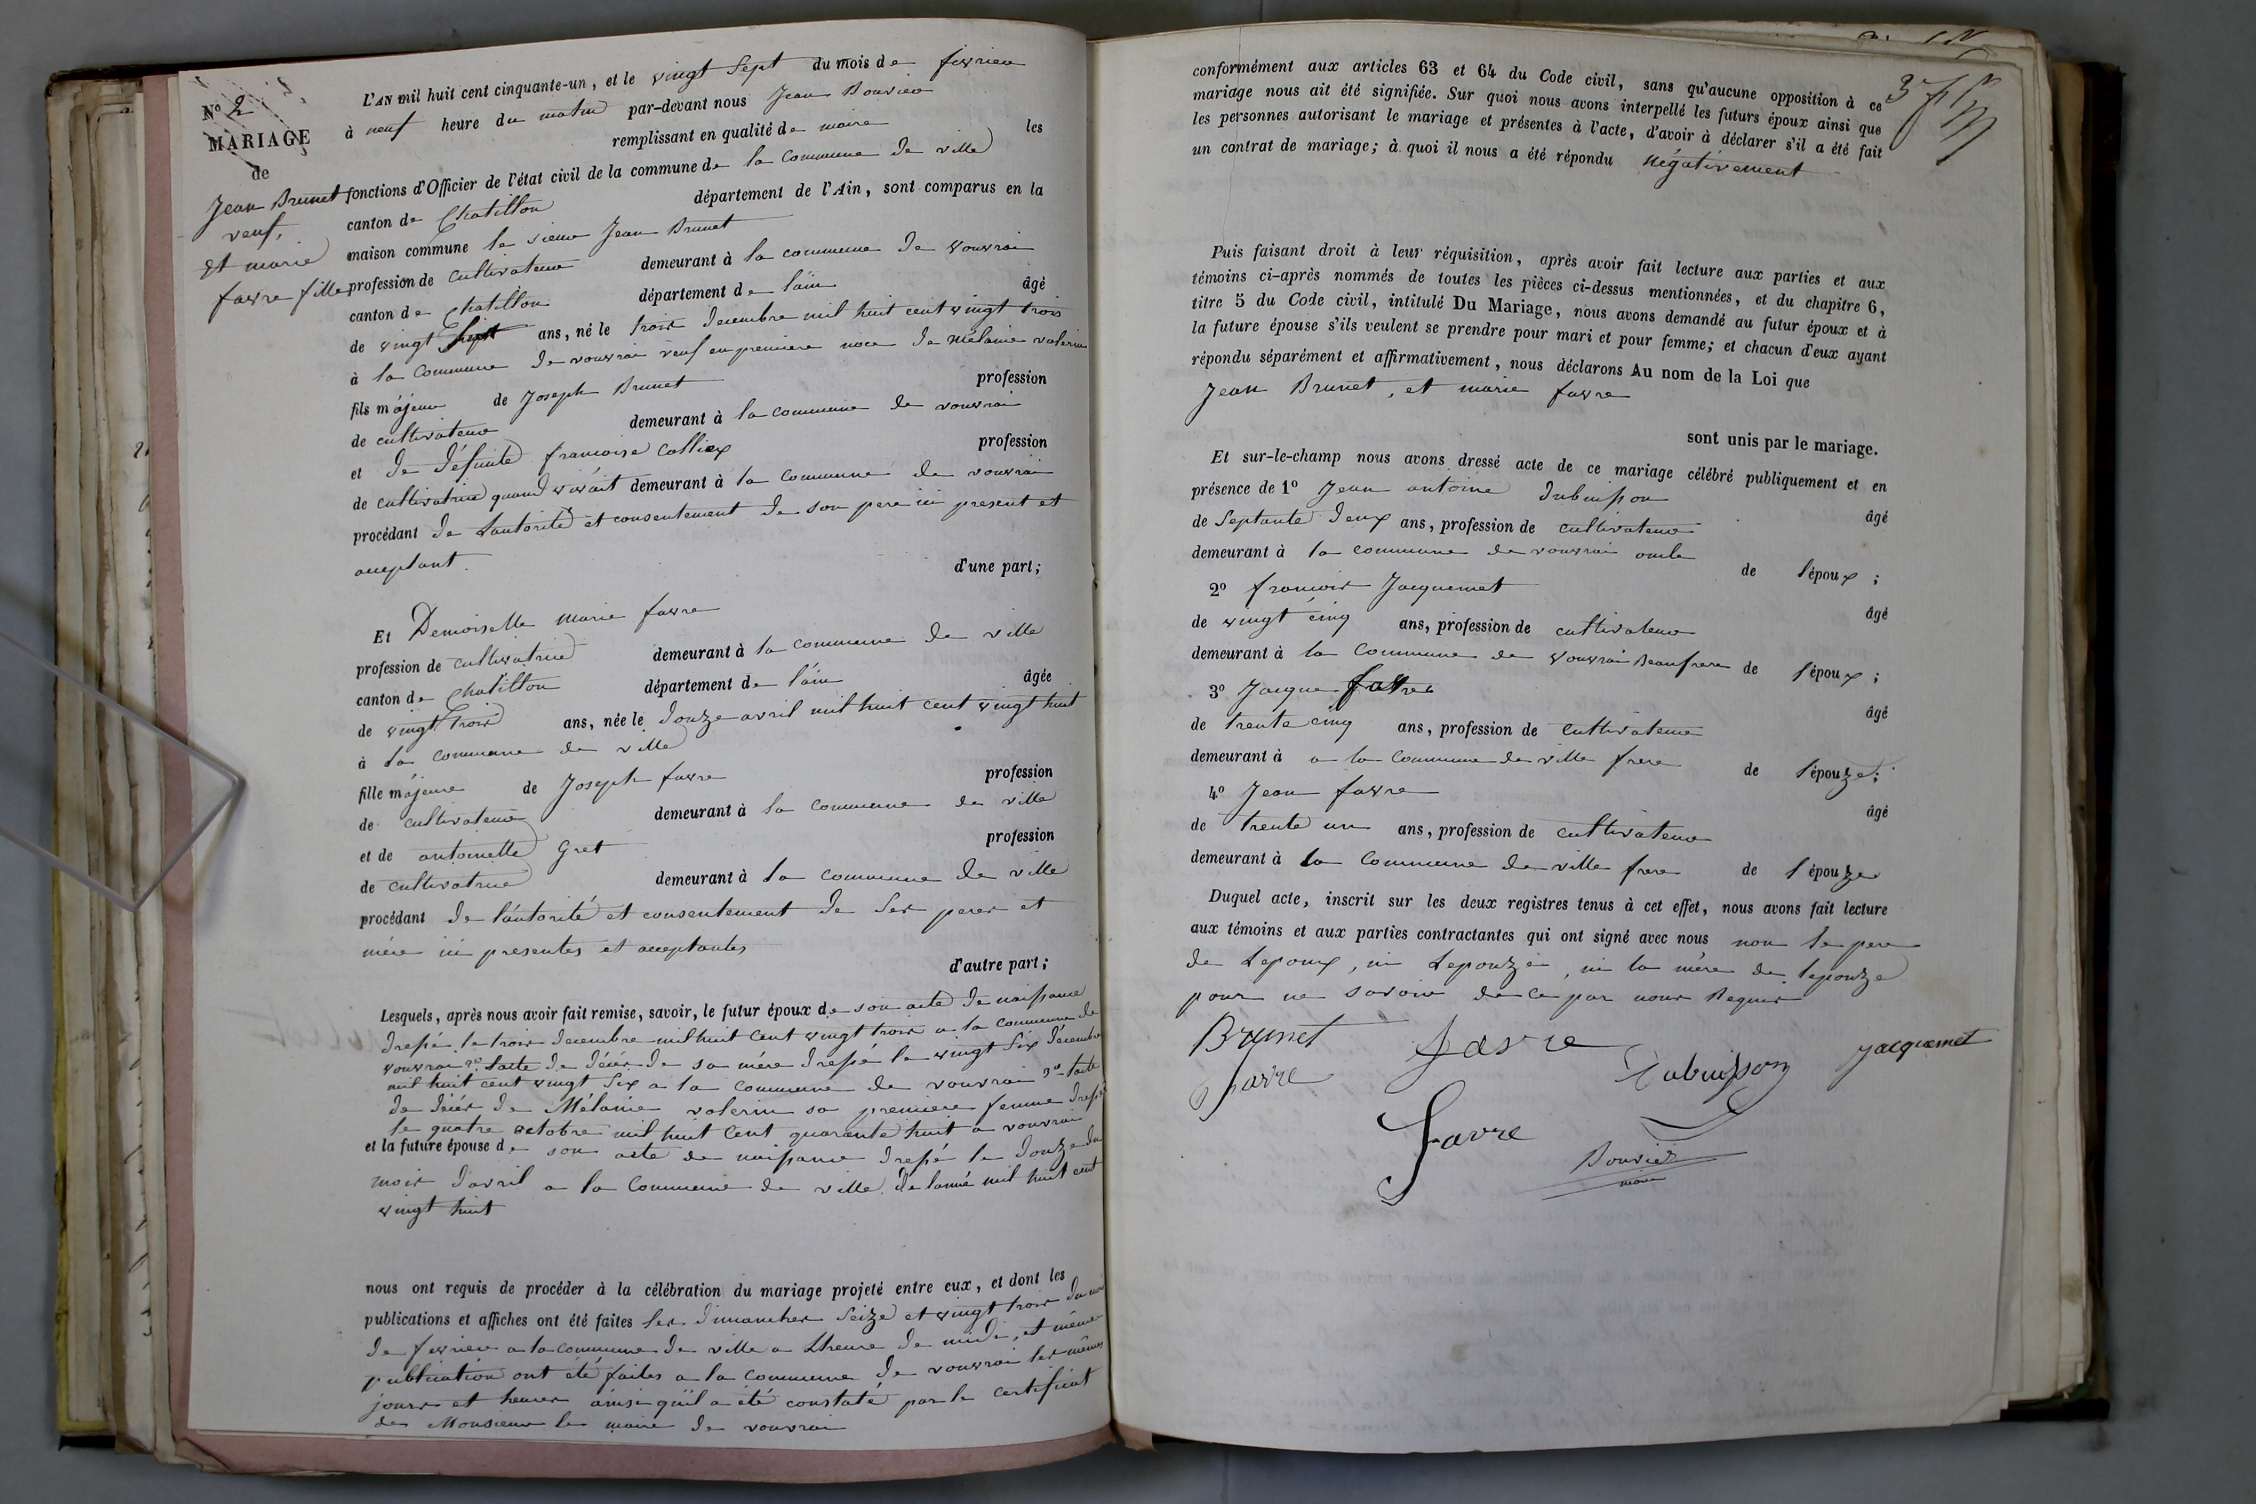 N° 2
MARIAGE
de
Jean Brunet
veuf,
et marie
favre fille
L'AN mil huit cent cinquante-un, et le vingt Sept du mois de fevrier
à neuf heure du matin par-devant nous Jean Bouvier
remplissant en qualité de maire les
fonctions d'Officier de l'état civil de la commune de la Commune de ville
canton de Chatillon département de l'Ain, sont comparus en la
maison commune le sieur Jean Brunet
profession de cultivateur demeurant à la commune de vouvrai
canton de Chatillon département de l'ain âgé
de vingt Sept ans, né le trois decembre mil huit cent vingt trois
à la Commune de vouvrai veuf en premiere noce de Mélanie valerin
fils májeur de Joseph Brunet profession
de cultivateur demeurant à la commune de vouvrai
et de défunte francoise Colliex profession
de cultivatrice quand vivait demeurant à la Commune de vouvrai
procédant de Lautorité et consentement de son pere ici present et
acceptant. d'une part;
Et Demoiselle marie favre
profession de cultivatrice demeurant à la commune de ville
canton de Chatillon département de l'ain âgée
de vingt trois ans, née le douze avril mil huit cent vingt huit
à la commune de ville
fille májeure de Joseph favre profession
de cultivateur demeurant à la commune de ville
et de antoinette Gret profession
de cultivatrice demeurant à la commune de ville
procédant de láutorité et consentement de Ses peres et
mére ici presentes et acceptantes
d'autre part;
Lesquels, après nous avoir fait remise, savoir, le futur époux de son acte de naissance
dressé le trois decembre mil huit Cent vingt trois a la commune de
vouvrai 2° lacte de décés de sa mére dressé le vingt Six décembre
mil huit cent vingt Six a la commune de vouvrai 3° lacte
de décés de Mélanie valerin sa premiere femme dressé
le quatre octobre mil huit Cent quarante huit a vouvrai
et la future épouse de son acte de naissance dressé le douze du
mois davril a la Commune de ville de lanné mil huit cent
vingt huit
nous ont requis de procéder à la célébration du mariage projeté entre eux, et dont les
publications et affiches ont été faites les dimanches Seize et vingt trois du mois
de fevrier a la commune de ville a Lheure de midi, et même
publication ont été faites a la commune de vouvrai les mêmes
jours et heures áinsi qúil a été constaté par le certificat
de Monsieur le maire de vouvrai
conformément aux articles 63 et 64 du Code civil, sans qu'aucune opposition à ce
mariage nous ait été signifiée. Sur quoi nous avons interpellé les futurs époux ainsi que
les personnes autorisant le mariage et présentes à l'acte, d'avoir à déclarer s'il a été fait
un contrat de mariage; à quoi il nous a été répondu négativement
Puis faisant droit à leur réquisition, après avoir fait lecture aux parties et aux
témoins ci-après nommés de toutes les pièces ci-dessus mentionnées, et du chapitre 6,
titre 5 du Code civil, intitulé Du Mariage, nous avons demandé au futur époux et à
la future épouse s'ils veulent se prendre pour mari et pour femme; et chacun d'eux ayant
répondu séparément et affirmativement, nous déclarons Au nom de la Loi que
Jean Brunet, et marie favre
sont unis par le mariage.
Et sur-le-champ nous avons dressé acte de ce mariage célébré publiquement et en
présence de 1° Jean antoine dubuisson
de Septante deux ans, profession de cultivateur âgé
demeurant à la commune de vouvrai oncle de l'époux;
2° francois Jacquemet
de vingt cinq ans, profession de cultivateur âgé
demeurant à la Commune de vouvrai Beaufrere de l'époux;
3° Jacque favre
de trente cinq ans, profession de cultivateur âgé
demeurant à a la Commune de ville frere de l'épouze;
4° Jean favre
de trente un ans, profession de cultivateur âgé
demeurant à la Commune de ville frere de l'épouze
Duquel acte, inscrit sur les deux registres tenus à cet effet, nous avons fait lecture
aux témoins et aux parties contractantes qui ont signé avec nous non le pere
de Lepoux, ni Lepouze, ni la mére de lepouze
pour ne savoir de ce par nous Requis
Brunet favre Dubuisson jacquemet
favre
favre
Bouvier
maire